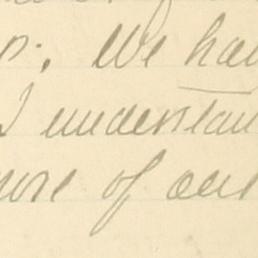 p. We hav
I understan
more of our